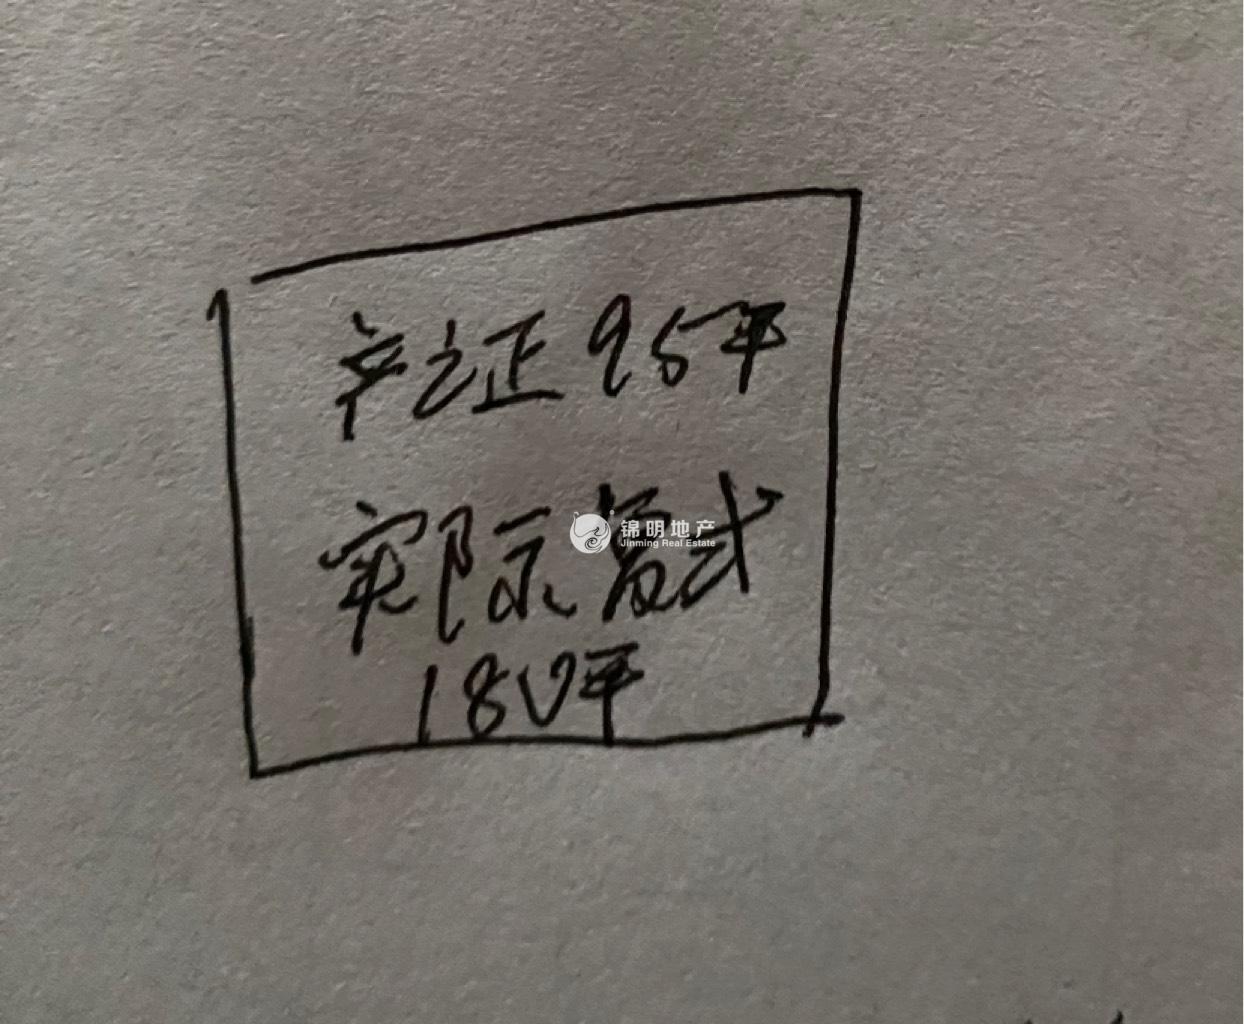 产证95平
实际复式
180平
锦明地产
Jinming Real Estate